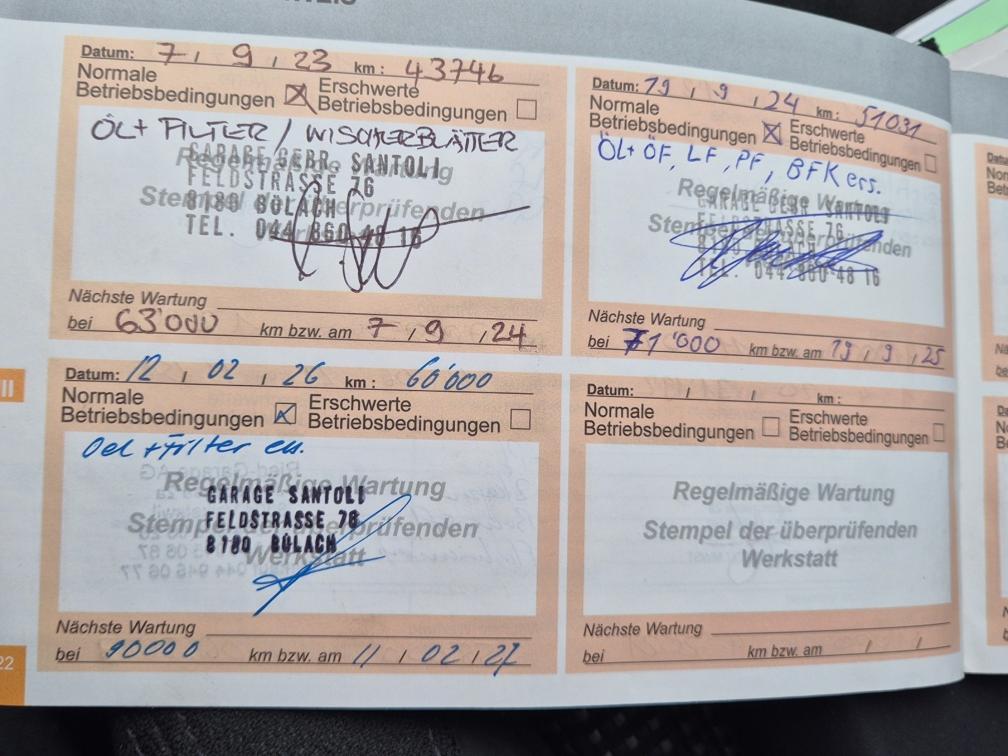 Datum: 7, 9, 23 km: 43746
Normale Betriebsbedingungen ☒ Erschwerte Betriebsbedingungen ☐
ÖL + FILTER / WISCHERBLÄTTER
Regelmäßige Wartung
Stempel der überprüfenden
GARAGE GEBR. SANTOLI
FELDSTRASSE 76
8180 BÜLACH
TEL. 044 860 48 16
Nächste Wartung
bei 63'000 km bzw. am 7, 9, 24
Datum: 19, 9, 24 km: 51031
Normale Betriebsbedingungen ☒ Erschwerte Betriebsbedingungen ☐
ÖL + ÖF, LF, PF, BFK ers.
Regelmäßige Wartung
Stempel der überprüfenden
GARAGE GEBR SANTOLI
FELDSTRASSE 76
TEL. 044 860 48 16
Nächste Wartung
bei 71'000 km bzw. am 19, 9, 25
Datum: 12, 02, 26 km: 60'000
Normale Betriebsbedingungen ☒ Erschwerte Betriebsbedingungen ☐
Oel + Filter
Regelmäßige Wartung
Stempel der überprüfenden
Werkstatt
GARAGE SANTOLI
FELDSTRASSE 76
8180 BÜLACH
Nächste Wartung
bei 90000 km bzw. am 11, 02, 27
Datum: , , km:
Normale Betriebsbedingungen ☐ Erschwerte Betriebsbedingungen ☐
Regelmäßige Wartung
Stempel der überprüfenden
Werkstatt
Nächste Wartung
bei km bzw. am / /
22